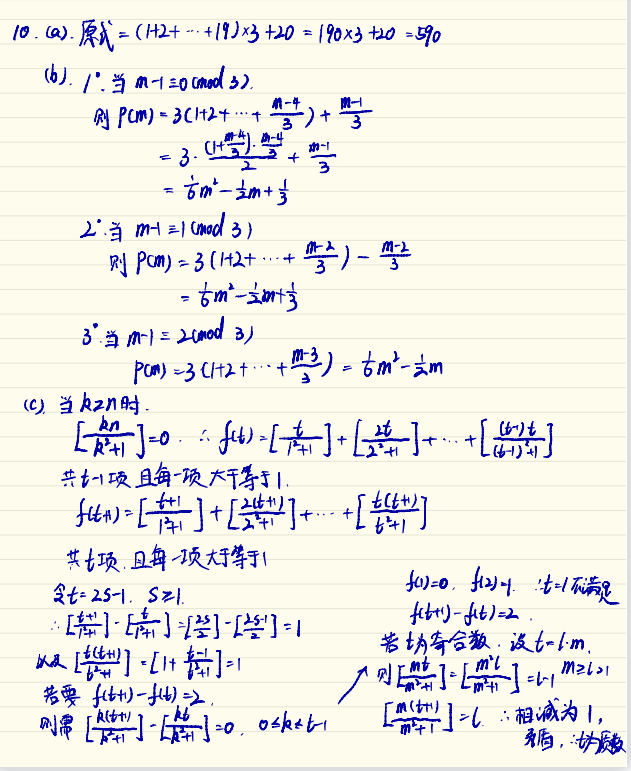 10. (a). 原式 = (1+2+ ··· +19)×3+20 = 190×3+20 = 590
(b). 1°. 当 m-1≡0 (mod 3).
则 P(m) = 3(1+2+ ··· + \frac{m-4}{3}) + \frac{m-1}{3}
= 3 · \frac{(1+\frac{m-4}{3})·\frac{m-4}{3}}{2} + \frac{m-1}{3}
= \frac{1}{6}m² - \frac{1}{2}m + \frac{1}{3}
2°. 当 m-1≡1 (mod 3)
则 P(m) = 3(1+2+ ··· + \frac{m-2}{3}) - \frac{m-2}{3}
= \frac{1}{6}m² - \frac{1}{2}m + \frac{1}{3}
3° 当 m-1 ≡ 2 (mod 3)
P(m) = 3(1+2+ ··· + \frac{m-3}{3}) = \frac{1}{6}m² - \frac{1}{2}m
(c) 当 k≥n 时.
[\frac{kn}{k²+1}] = 0. ∴ f(t) = [\frac{t}{1²+1}] + [\frac{2t}{2²+1}] + ··· + [\frac{(t-1)t}{(t-1)²+1}]
共 t-1 项 且每一项 大于等于 1.
f(t+1) = [\frac{t+1}{1²+1}] + [\frac{2(t+1)}{2²+1}] + ··· + [\frac{t(t+1)}{t²+1}]
共 t 项. 且每一项大于等于 1
令 t = 2s-1, s≥1.
∴ [\frac{t+1}{1²+1}] - [\frac{t}{1²+1}] = [\frac{2s}{2}] - [\frac{2s-1}{2}] = 1
以及 [\frac{t(t+1)}{t²+1}] = [1+\frac{t-1}{t²+1}] = 1
若要 f(t+1) - f(t) = 2,
则需 [\frac{k(t+1)}{k²+1}] - [\frac{kt}{k²+1}] = 0. 0≤k≤t-1
f(1)=0, f(2)=1. ∴ t=1 不满足
f(t+1) - f(t) = 2.
若 t 为奇合数. 设 t = l·m.
则 [\frac{mt}{m²+1}] = [\frac{m²l}{m²+1}] = l-1 m≥l>1
[\frac{m(t+1)}{m²+1}] = l. ∴ 相减为 1,
矛盾, ∴ t 为质数